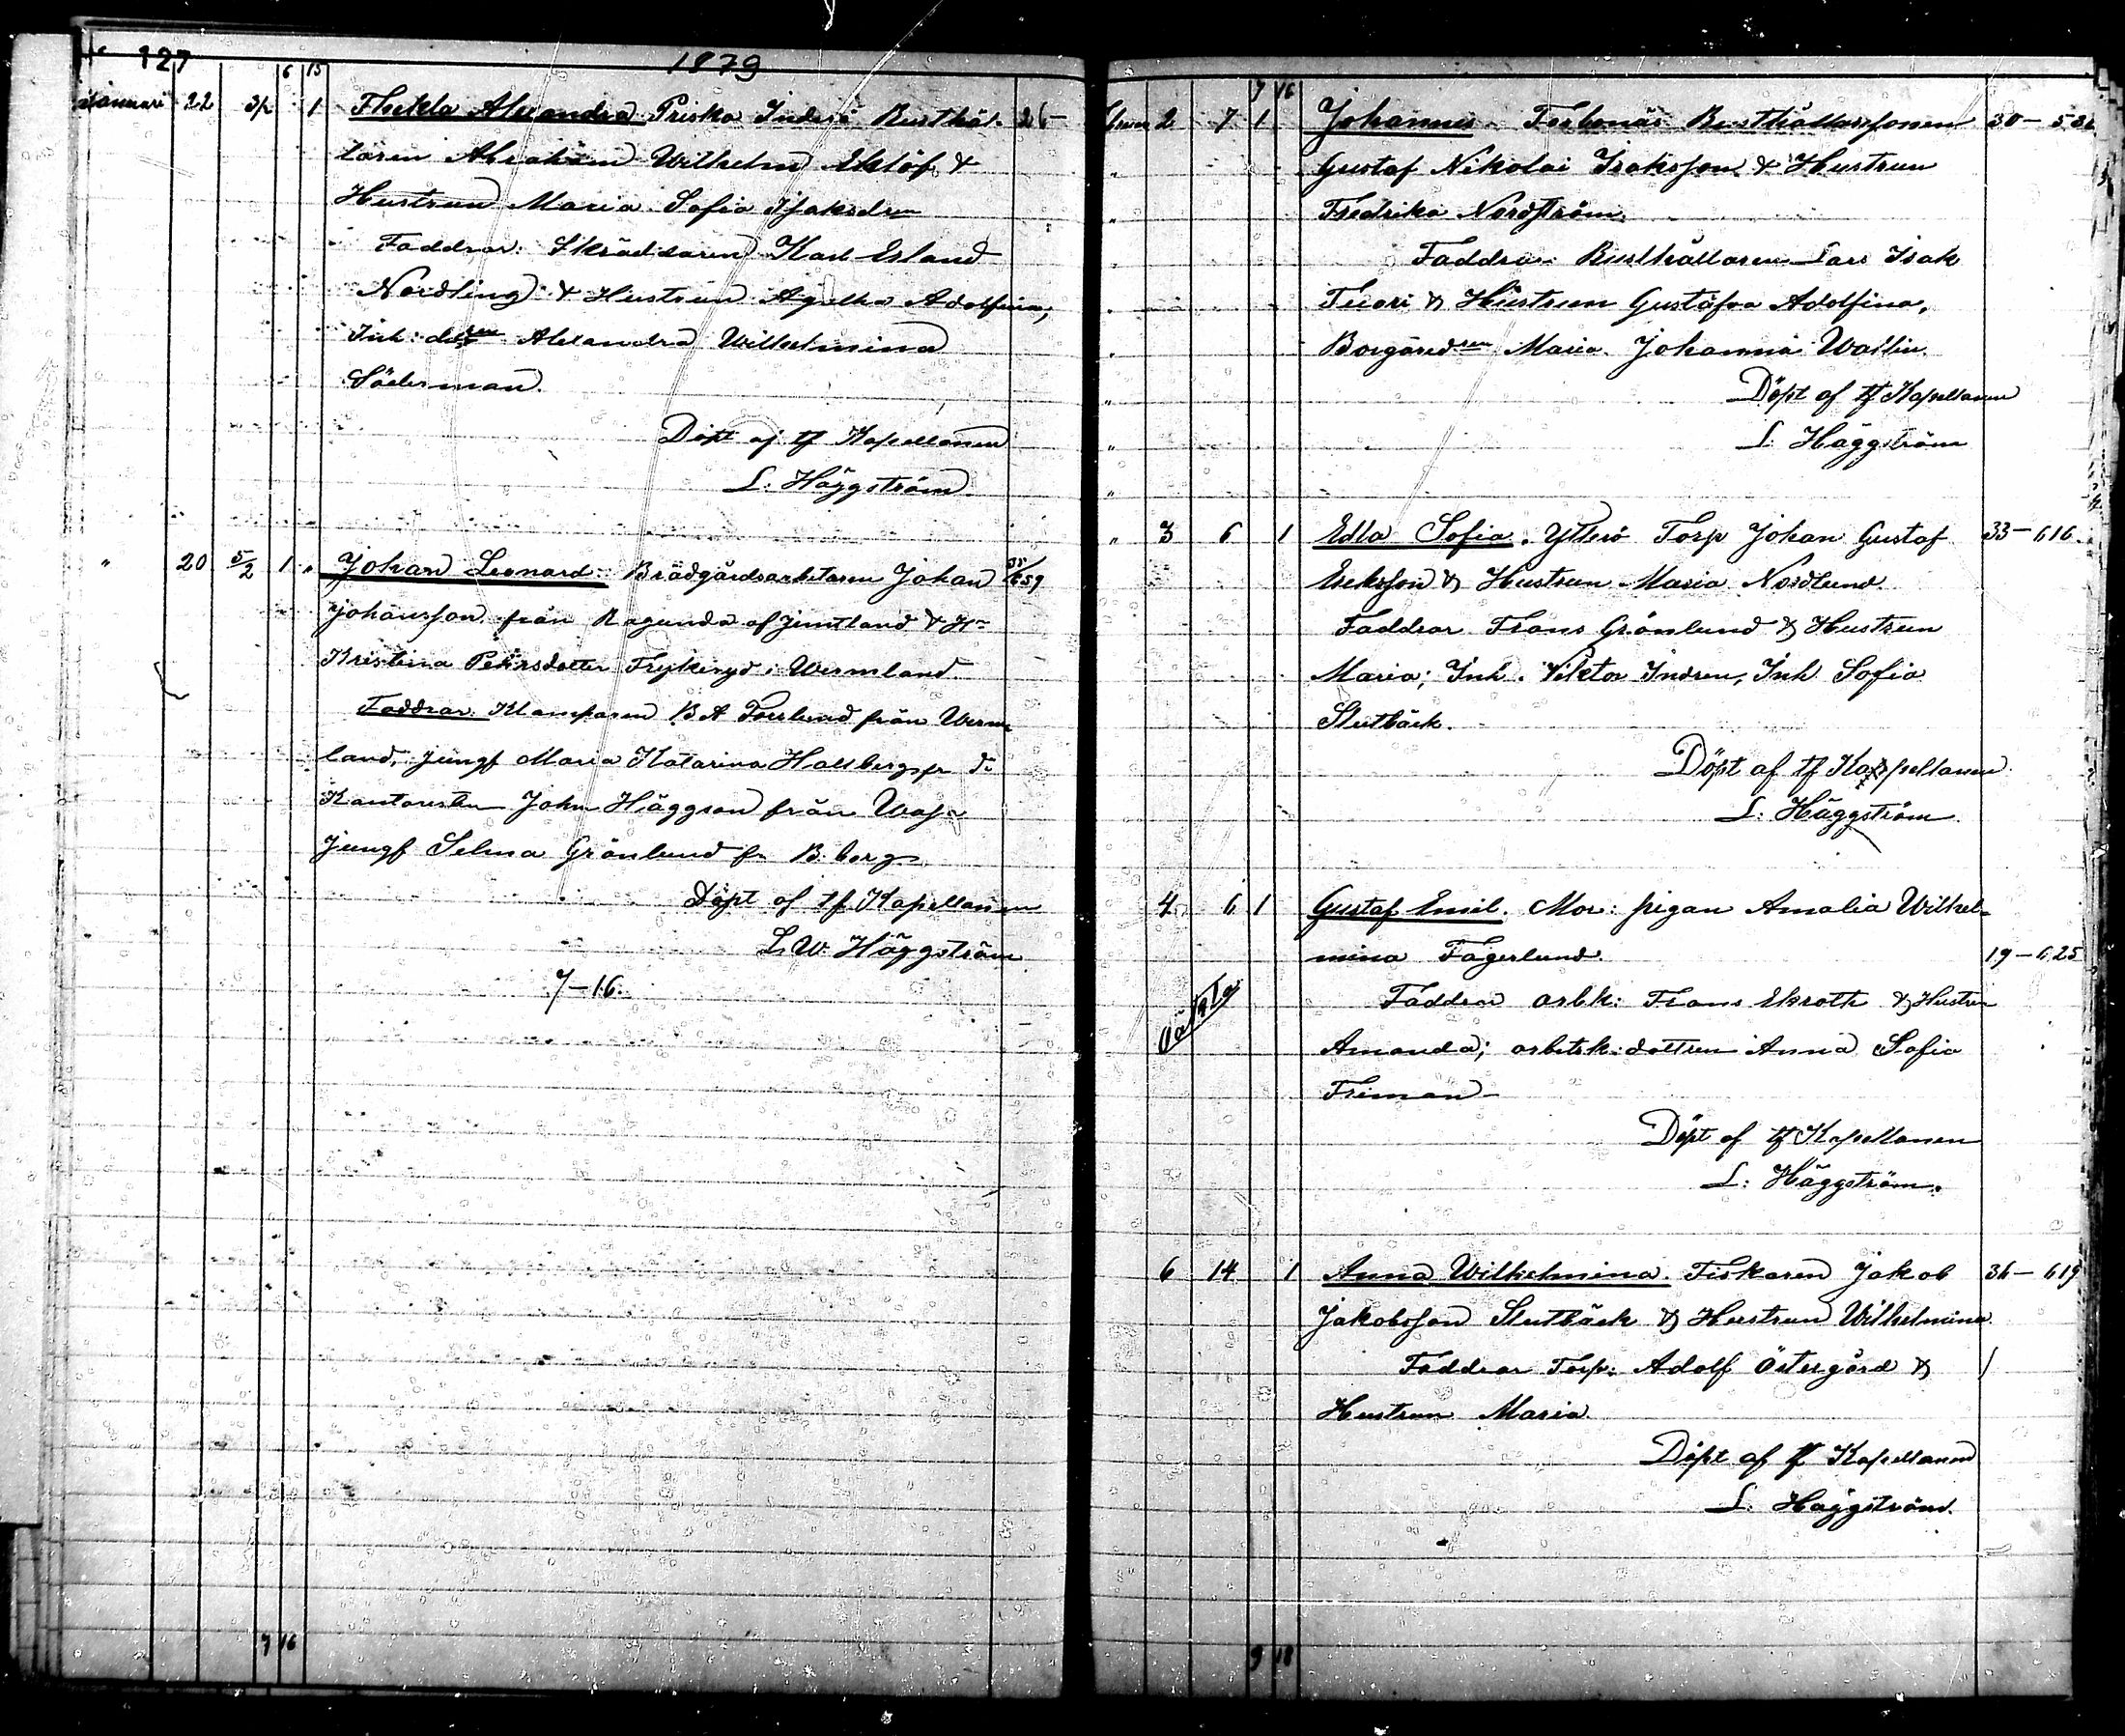 127 1879
6 15
Januari 22 3/2 1 Thekla Alexandra Priska Inderö Rusthål- 26-
laren Abraham Wilhelm Eklöf &
Hustrun Maria Sofia Isaksdrn
Faddrar: Skräddaren Karl Erland
Nordling & Hustrun Agatha Adolfina,
Inh: drn Alexandra Wilhelmina
Söderman.
Döpt af tf Kapellanen
L. Häggström
" 20 5/2 1 " Johan Leonard: Brädgårdsarbetaren Johan 659
Johansson från Ragunda af Jemtland & H
Kristina Pehrsdotter Frykeryd i Wermland.
Faddrar: Klamparen B A Forslund från Werm
land, jungf Maria Katarina Hallberg fr d:o
Kontoristen John Häggson från Wasa
jungf Selma Grönlund fr B:borg
Döpt af tf Kapellanen
L. W. Häggström
7-16.
7 16
7 16
2 7 1 Johannes Torbonäs Rusthållaresonen 30-
Gustaf Nikolai Isaksson & Hustrun
Fredrika Nordström.
Faddrar: Rusthållaren Lars Isak
Tuori & Hustrun Gustafva Adolfina,
Borgaredrn Maria Johanna Wallin.
Döpt af tf Kapellanen
L. Häggström
" 3 6 1 Edla Sofia. Ytterö Torp Johan Gustaf 33-616.
Eriksson & Hustrun Maria Nordlund.
Faddrar Frans Grönlund & Hustrun
Maria; Inh. Viktor Indren, Inh Sofia
Slutbäck.
Döpt af tf Kappellanen
L. Häggström
4 6 1 Gustaf Emil. Mor: pigan Amalia Wilhel-
mina Fagerlund. 19-625
oäkta Faddrar arbk: Frans Ekroth & Hustru
Amanda; arbetsk:dottren Anna Sofia
Friman-
Döpt af tf Kapellanen
L: Häggström.
6 14 1 Anna Wilhelmina. Fiskaren Jakob 36-619
Jakobsson Slutbäck & Hustrun Wilhelmina
Faddrar Torp: Adolf Östergård &
Hustrun Maria.
Döpt af tf Kapellanen
L. Häggström.
9 18